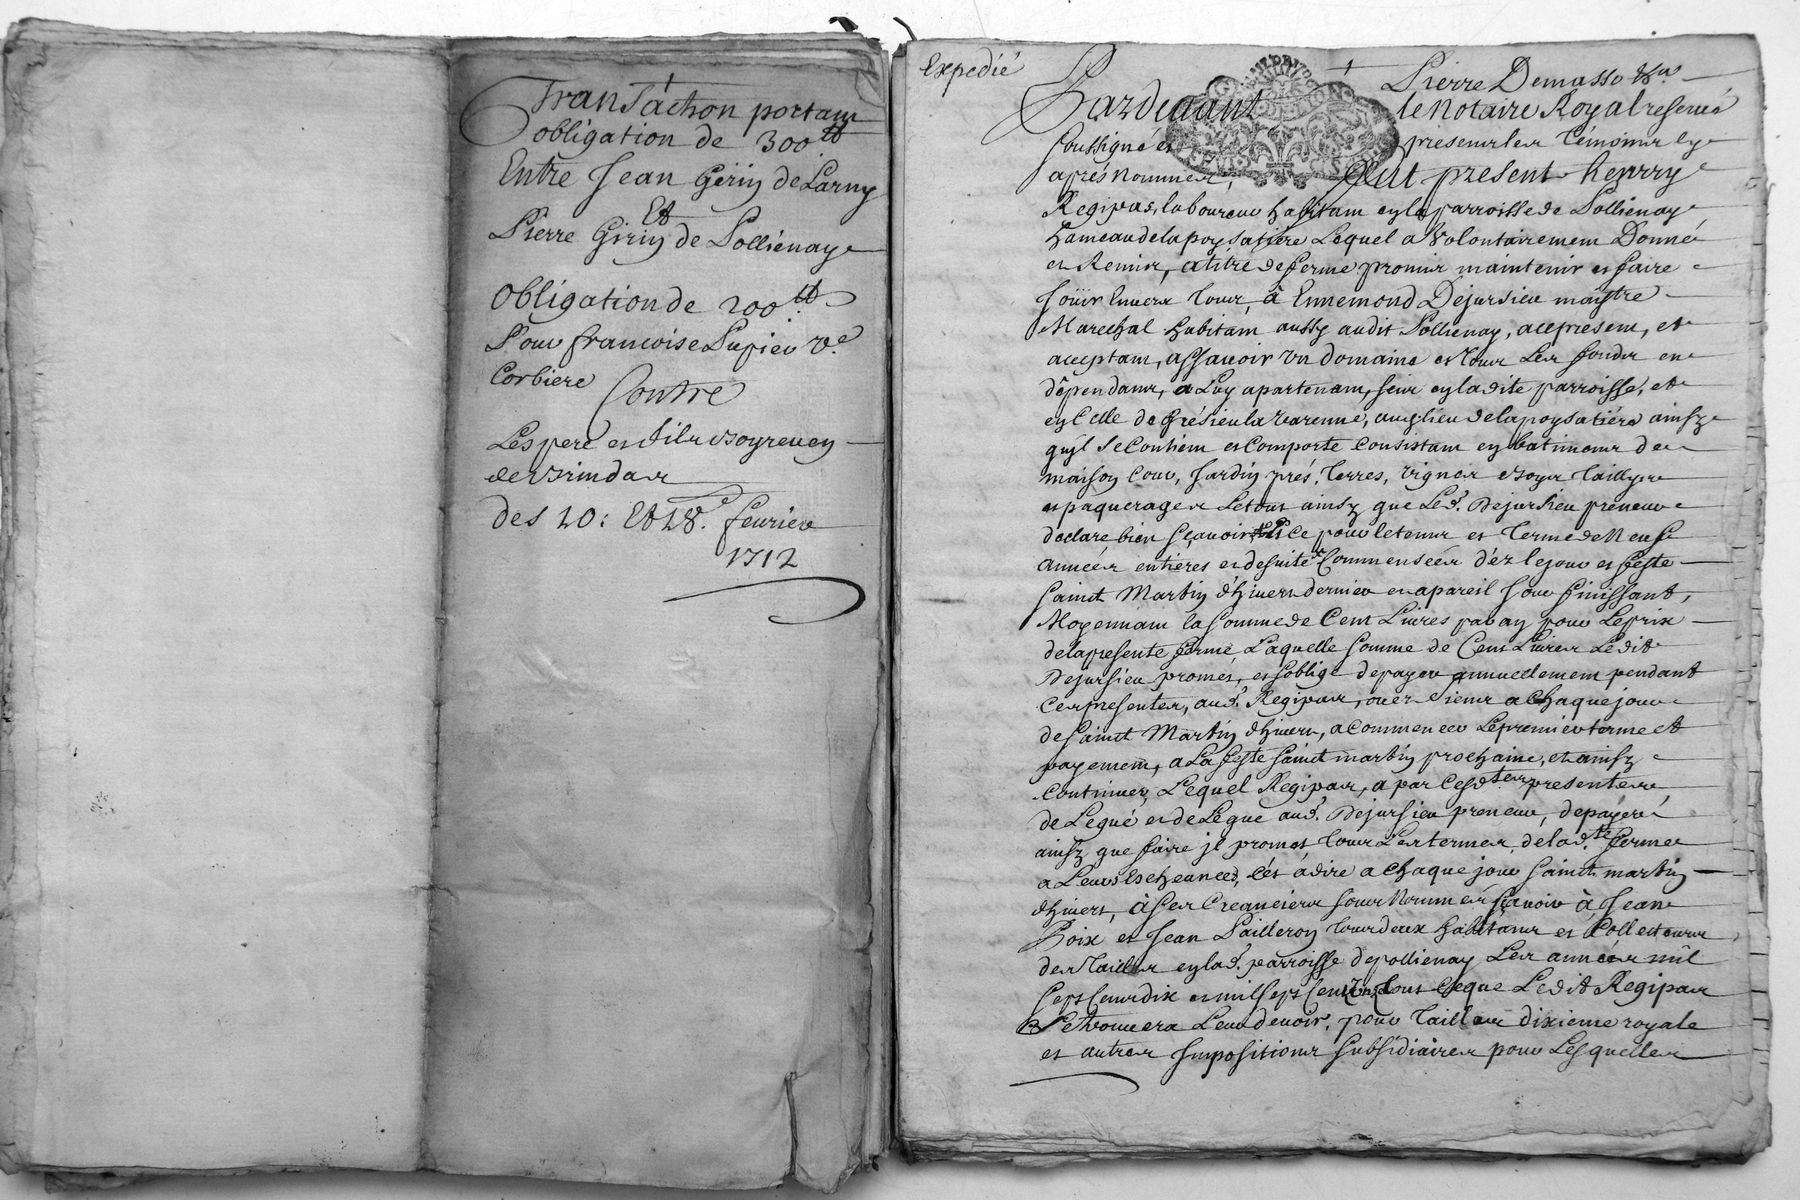 Transaction portant
obligation de 300 tt
Entre Jean Girin de Larny
Et
Pierre Girin de Pollienay
Obligation de 200 tt
Pour francoise Pupier ve
Corbiere
Contre
Les pere et fils
de Brindas
des 20: Et 28e. feurier
1712
Expedié
Pardeuant
Pierre Demasso &ca
le Notaire Royal reserué
soussigné et
presents les témoins en
apres nommés,
fut present henry
Regipas, laboureur habitant en la parroisse de Pollienay
hameau de la poysatiere Lequel a Volontairement Donné
et Remis, a titre de ferme promis maintenir et faire
Joüir Enuers tous, à Ennemond Dejursieu maistre
Marechal habitant aussy audit Pollienay, acepresent, et
acceptant, assauoir vn domaine et tous Les fonds en
dépendants, a Luy apartenant, scur en ladite parroisse, et
en Celle de Grésieu la varenne, au lieu de la poysatiére ainsy
quil Se Contient et Comporte Consistant en batiments de
maison Cour, Jardin prés, Terres, vignes Boys Taillys
et paquerages Le tout ainsy que Led. Dejursieu preneur
declare bien sçauoir Et Ce pour le temps et Terme de Neuf
années entiéres et de suite Commensées d'éz le jour et feste
Sainct Martin d'hiuers dernier et a pareil jour finissant,
Moyennant la somme de Cent Liures par an pour Le prix
de la presente ferme, Laquelle somme de Cent Liures Ledit
Dejursieu promet, et s'oblige de payer annuellement pendant
Ces presentes, aud. Regipas, ou es siens a Chaque jour
de Sainct Martin d'hiuers, a Commencer Le premier terme et
payement, a La feste Sainct martin prochaine, et ainsy
Continuer, Lequel Regipas, a par Cesdtes presentes
de Legué et de Legue aud. Dejursieu preneur, de payer
ainsy que faire jl promet tous Les termes de lad.te ferme
a Leurs Escheances, c'ést à dire a Chaque jour Sainct martin
d'hiuers, à Ses Creanciers sous Nommés Sçauoir à Jean
Poix et Jean Pailleron tous deux habitants et Collecteurs
des Tailles en lad. parroisse de pollienay Les années mil
Sept Cents dix et mil sept Cents onze tout Ce que Ledit Regipas
Se trouuera Leur deuoir, pour Tailles dixieme royale
et autres Impositions subsidiaires pour Lesquelles